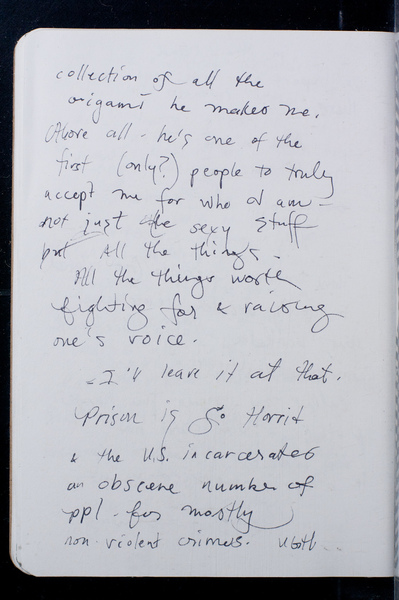 collection of all the
origami he makes me.
Above all - he's one of the
first (only?) people to truly
accept me for who I am -
not just the sexy stuff
but All the things.
All the things worth
fighting for & raising
one's voice.
- I'll leave it at that.
Prison is so Horrid
& the U.S. incarcerates
an obscene number of
ppl - for mostly
non-violent crimes.